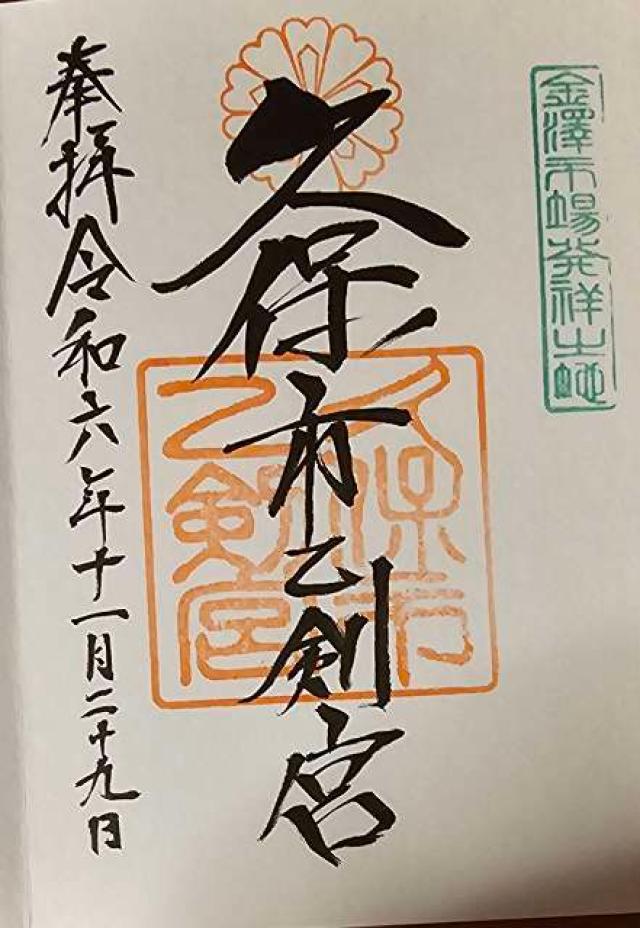 金澤市場発祥之地
久保市乙剣宮
久保市
乙剣宮
奉拝令和六年十一月二十九日